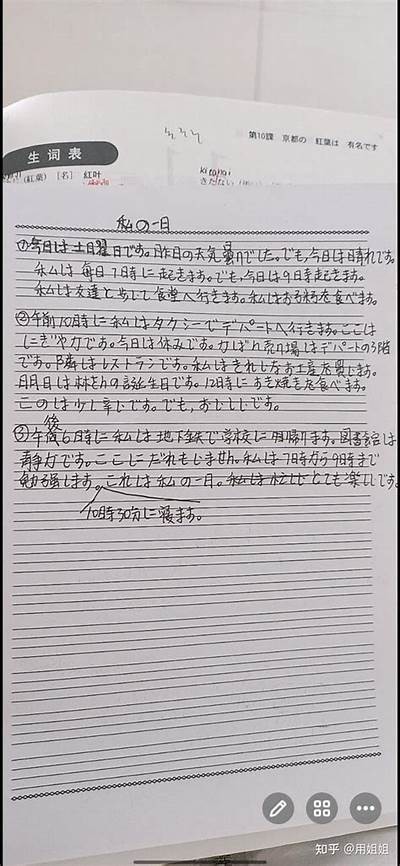 第10課 京都の 紅葉は 有名です
生词表
(紅葉) [名] 紅叶
きたない
私の一日
①今日は土曜日です。昨日の天気曇りでした。でも、今日は晴れです。
私は毎日7時に起きます。でも、今日は9日時起きます。
私は友達と歩いて食堂へ行きます。私はお弁当を食べます。
②午前10時に私はタクシーでデパートへ行きます。ここは
にぎやカです。今日は休みです。かばん売り場はデパートの3階
です。隣はレストランです。私はきれいなお土産を買います。
明日は林さんの誕生日です。12時にすき焼きを食べます。
このは少し辛いです。でも、おいしいです。
③午後6時に私は地下鉄で学校に帰ります。図書館は
静カです。ここにだれもいません。私は7時から9時まで
勉強します。これは私の一日。私は忙しいとても楽しいです。
10時30分に寝ます。
知乎 @用姐姐